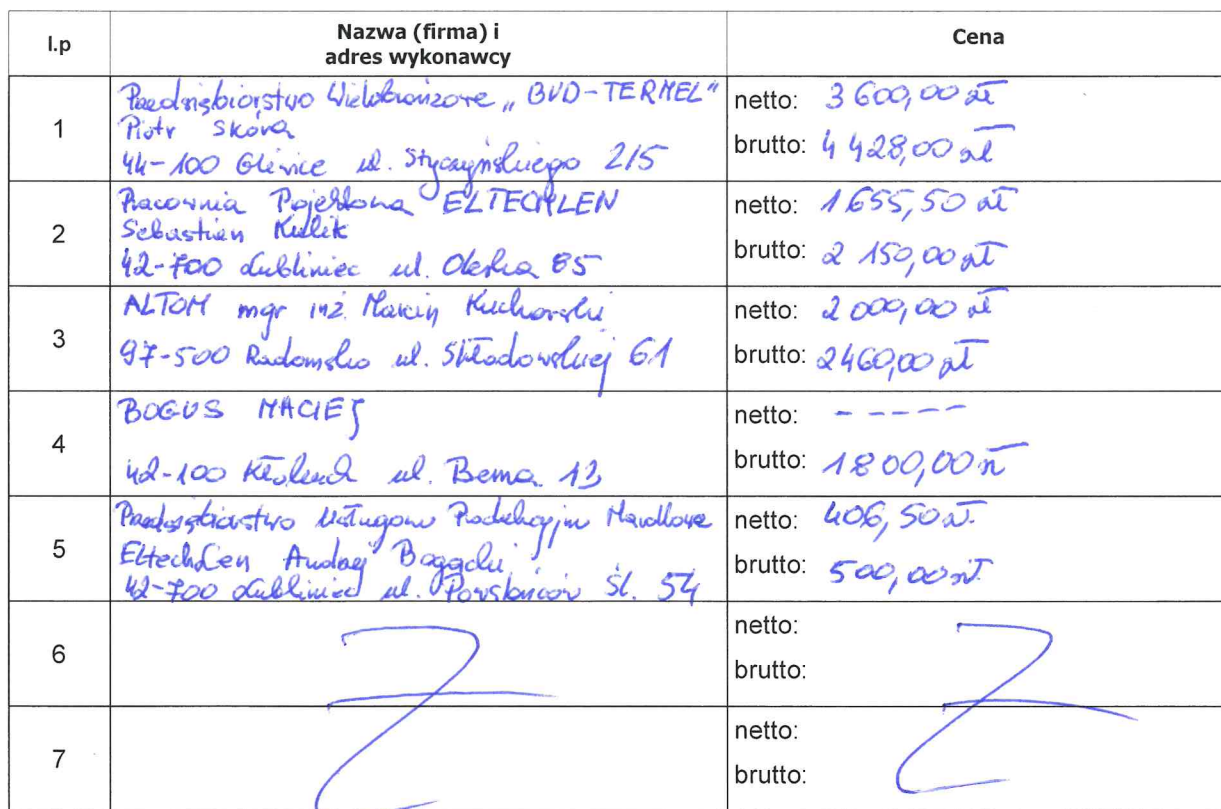 l.p
Nazwa (firma) i
adres wykonawcy
Cena
1
Przedsiębiorstwo Wielobranżowe „BUD-TERMEL"
Piotr Skóra
44-100 Gliwice ul. Styczyńskiego 2/5
netto: 3 600,00 zł
brutto: 4 428,00 zł
2
Pracownia ELTECHLEN
Sebastian Kulik
42-700 Lubliniec ul. Oleska 85
netto: 1655,50 zł
brutto: 2 150,00 zł
3
ALTOM mgr inż. Marcin
97-500 Radomsko ul. Skłodowskiej 61
netto: 2 000,00 zł
brutto: 2460,00 zł
4
BOGUS MACIEJ
42-100 Kłobuck ul. Bema 13
netto: -----
brutto: 1800,00 zł
5
Przedsiębiorstwo Usługowo Produkcyjno Handlowe
EltechLen Andrzej
42-700 Lubliniec ul. Powstańców Śl. 54
netto: 406,50 zł.
brutto: 500,00 zł.
6
netto:
brutto:
7
netto:
brutto: